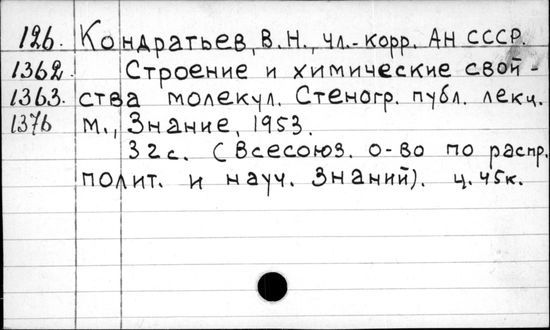 126. Кондратьев, В.Н., чл.-корр. АН СССР.
1362. Строение и химические свой-
1363. ства молекул. Стеногр. публ. лекц.
1376 М., Знание, 1953.
32с. (Всесоюз. о-во по распр.
полит. и науч. Знаний). ц. 45к.